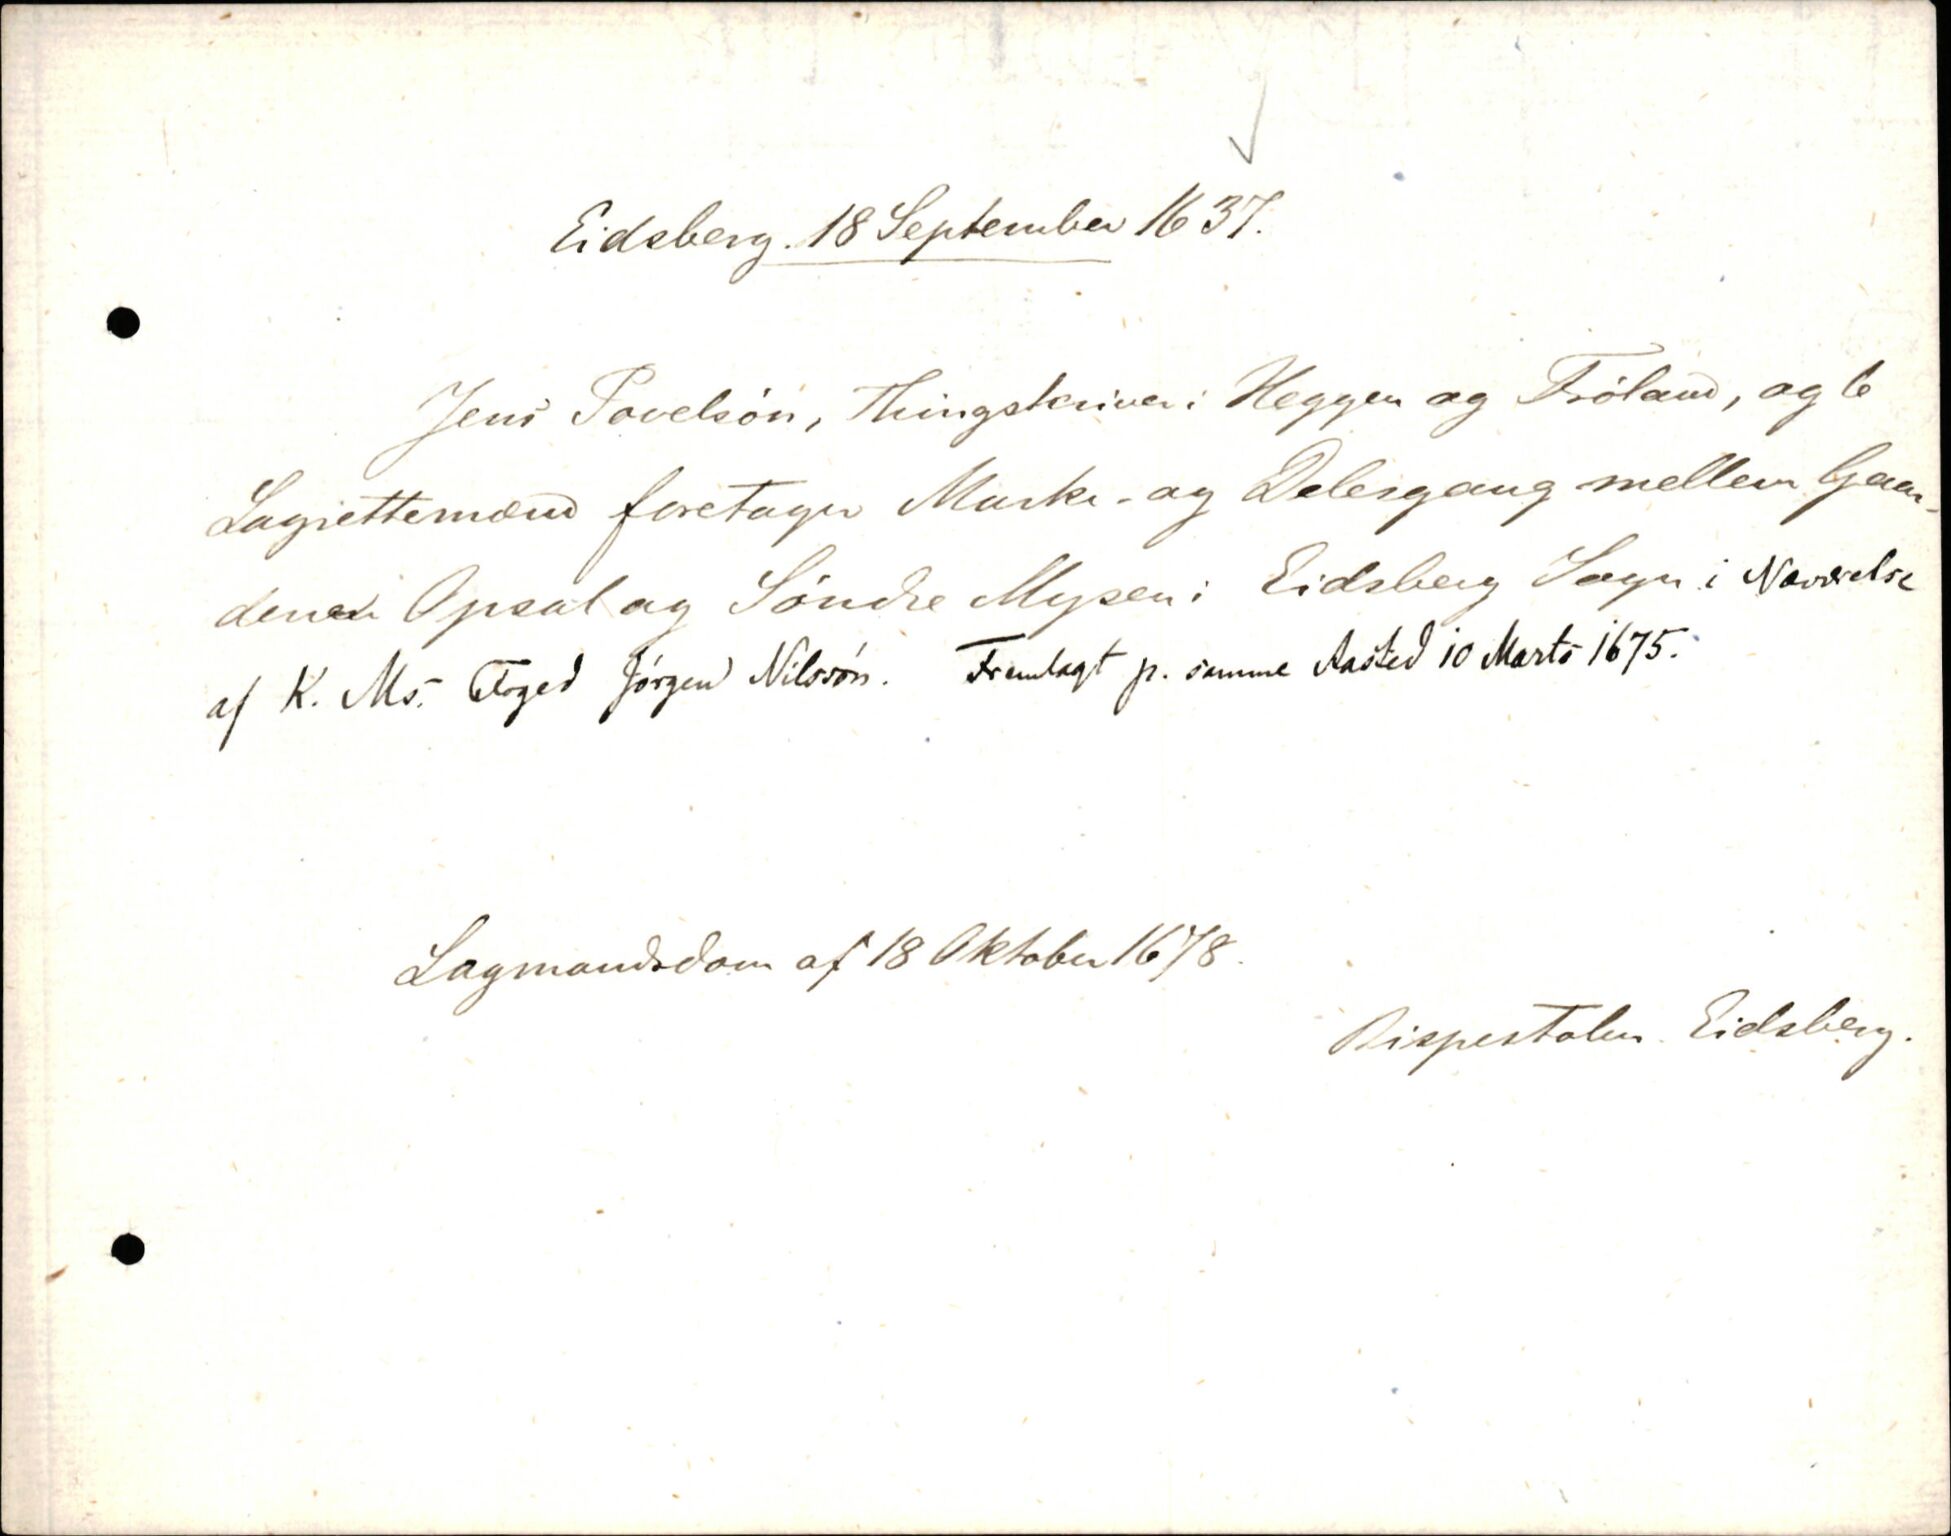 Eidsberg. 18 September 1637.
Jens Povelsön, Thingskriver i Heggen og Fröland, og 6
Lagrettemænd foretager Marke- og Delesgang mellem Gaar-
dene Opsal og Söndre Mysen i Eidsberg Sogn i Nærværelse
af K. Ms. Foged Jörgen Nilssön. Fremlagt p. samme Aasted 10 Marts 1675.
Lagmandsdom af 18 Oktober 1678.
Bispestolen Eidsberg.